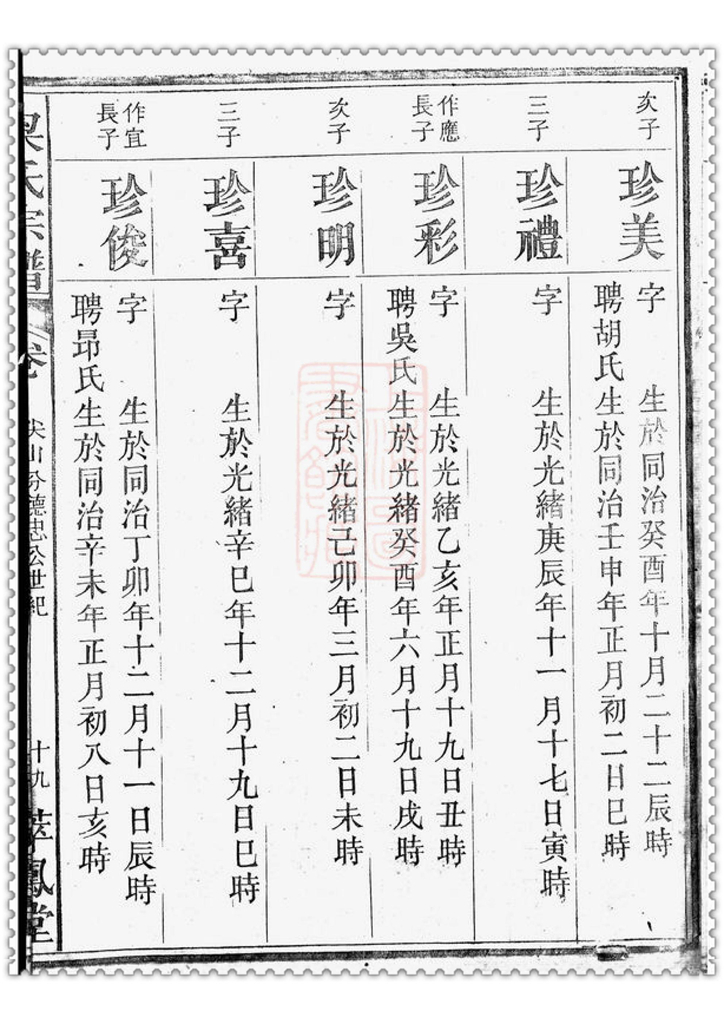 次子
珍美
字
生於同治癸酉年十月二十二辰時
聘胡氏生於同治壬申年正月初二日巳時
三子
珍禮
字
生於光緒庚辰年十一月十七日寅時
作應
長子
珍彩
字
生於光緒乙亥年正月十九日丑時
聘吳氏生於光緒癸酉年六月十九日戌時
次子
珍明
字
生於光緒己卯年三月初二日未時
三子
珍喜
字
生於光緒辛巳年十二月十九日巳時
作宜
長子
珍俊
字
生於同治丁卯年十二月十一日辰時
聘昂氏生於同治辛未年正月初八日亥時
氏宗譜
卷
尖山分德忠公世紀
十九
鳳堂